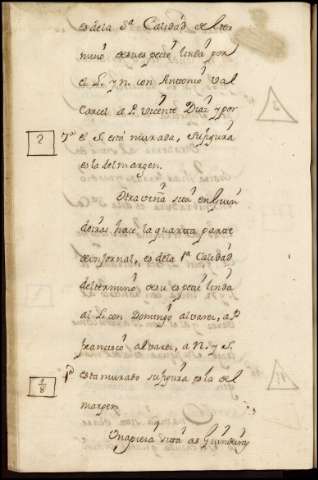 es de la 3ª Calidád del ter
minó desu espeçie linda por
el L. y n. con Antonió Val
Carcel a P. Vicente Diaz y por
2 7º el S. está murada, su figura
es la del margen.
Otra viña sita en Guin
deiras hace la quarta parte
de un fornal, es de la 1ª Calidád
del terminó desu espeçie linda
al L. con Domingo alvarez, a P.
francisco alvarez, a N. y S.
1/8 esta murado su figura es la del
margen
Una pieza sita do Guindeiras